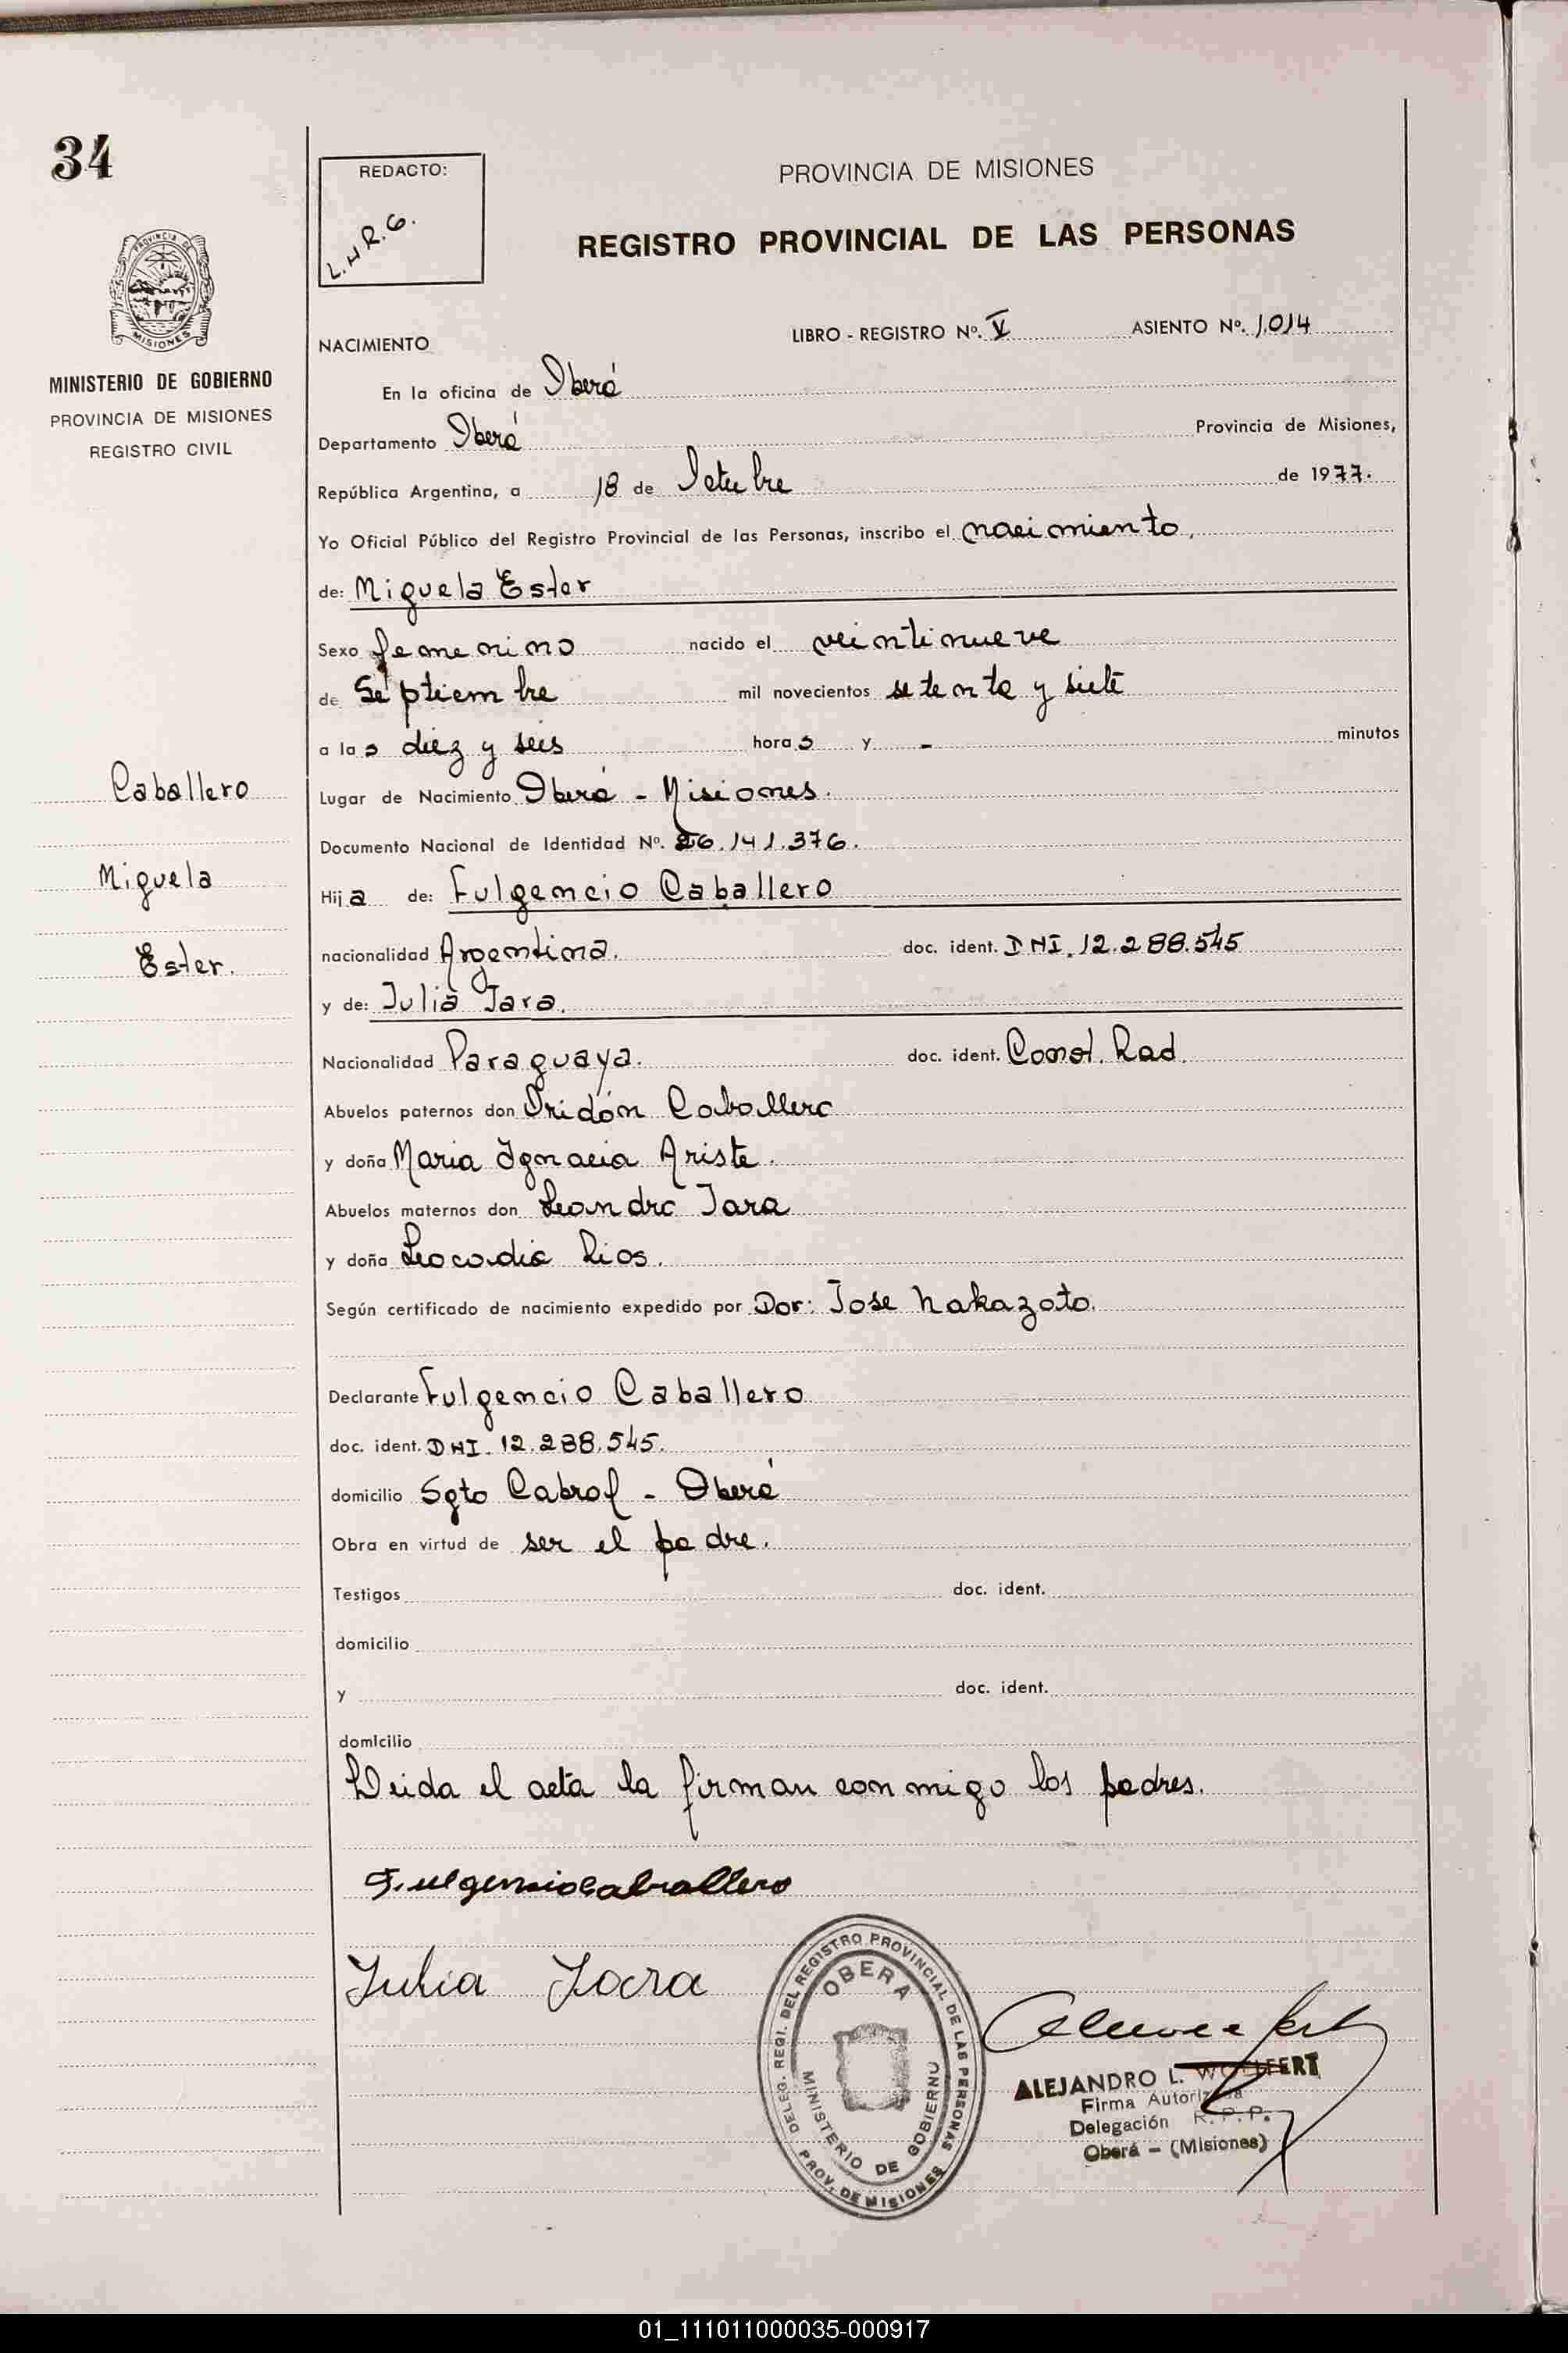 34
REDACTO:
L.H.R.G.
PROVINCIA DE MISIONES
REGISTRO PROVINCIAL DE LAS PERSONAS
PROVINCIA DE
MISIONES
MINISTERIO DE GOBIERNO
PROVINCIA DE MISIONES
REGISTRO CIVIL
NACIMIENTO LIBRO - REGISTRO Nº. V ASIENTO Nº. 1.014
En la oficina de Oberá
Departamento Oberá Provincia de Misiones,
República Argentina, a 18 de Octubre de 1977.
Yo Oficial Público del Registro Provincial de las Personas, inscribo el nacimiento,
de: Miguela Ester
Sexo femenino nacido el veintinueve
de Septiembre mil novecientos setenta y siete
a las diez y seis horas y - minutos
Caballero
Miguela
Ester.
Lugar de Nacimiento Oberá - Misiones.
Documento Nacional de Identidad Nº. 26.141.376.
Hija de: Fulgencio Caballero
nacionalidad Argentina. doc. ident. DNI. 12.288.545
y de: Julia Jara.
Nacionalidad Paraguaya. doc. ident. Const. Rad.
Abuelos paternos don Caballero
y doña Maria Ignacia Ariste.
Abuelos maternos don Leandro Jara
y doña Leocadia Rios.
Según certificado de nacimiento expedido por Dor: Jose Nakazato.
Declarante Fulgencio Caballero
doc. ident. DNI. 12.288.545.
domicilio Sgto Cabral - Oberá
Obra en virtud de ser el padre.
Testigos doc. ident.
domicilio
y doc. ident.
domicilio
Leida el acta la firman conmigo los padres.
Fulgencio Caballero
Julia Jara
DELEG. REGI. DEL REGISTRO PROVINCIAL DE LAS PERSONAS
OBERA
MINISTERIO DE GOBIERNO
PROV. DE MISIONES
ALEJANDRO L. WOLFERT
Firma Autorizada
Delegación R.P.P.
Oberá - (Misiones)
01_111011000035-000917